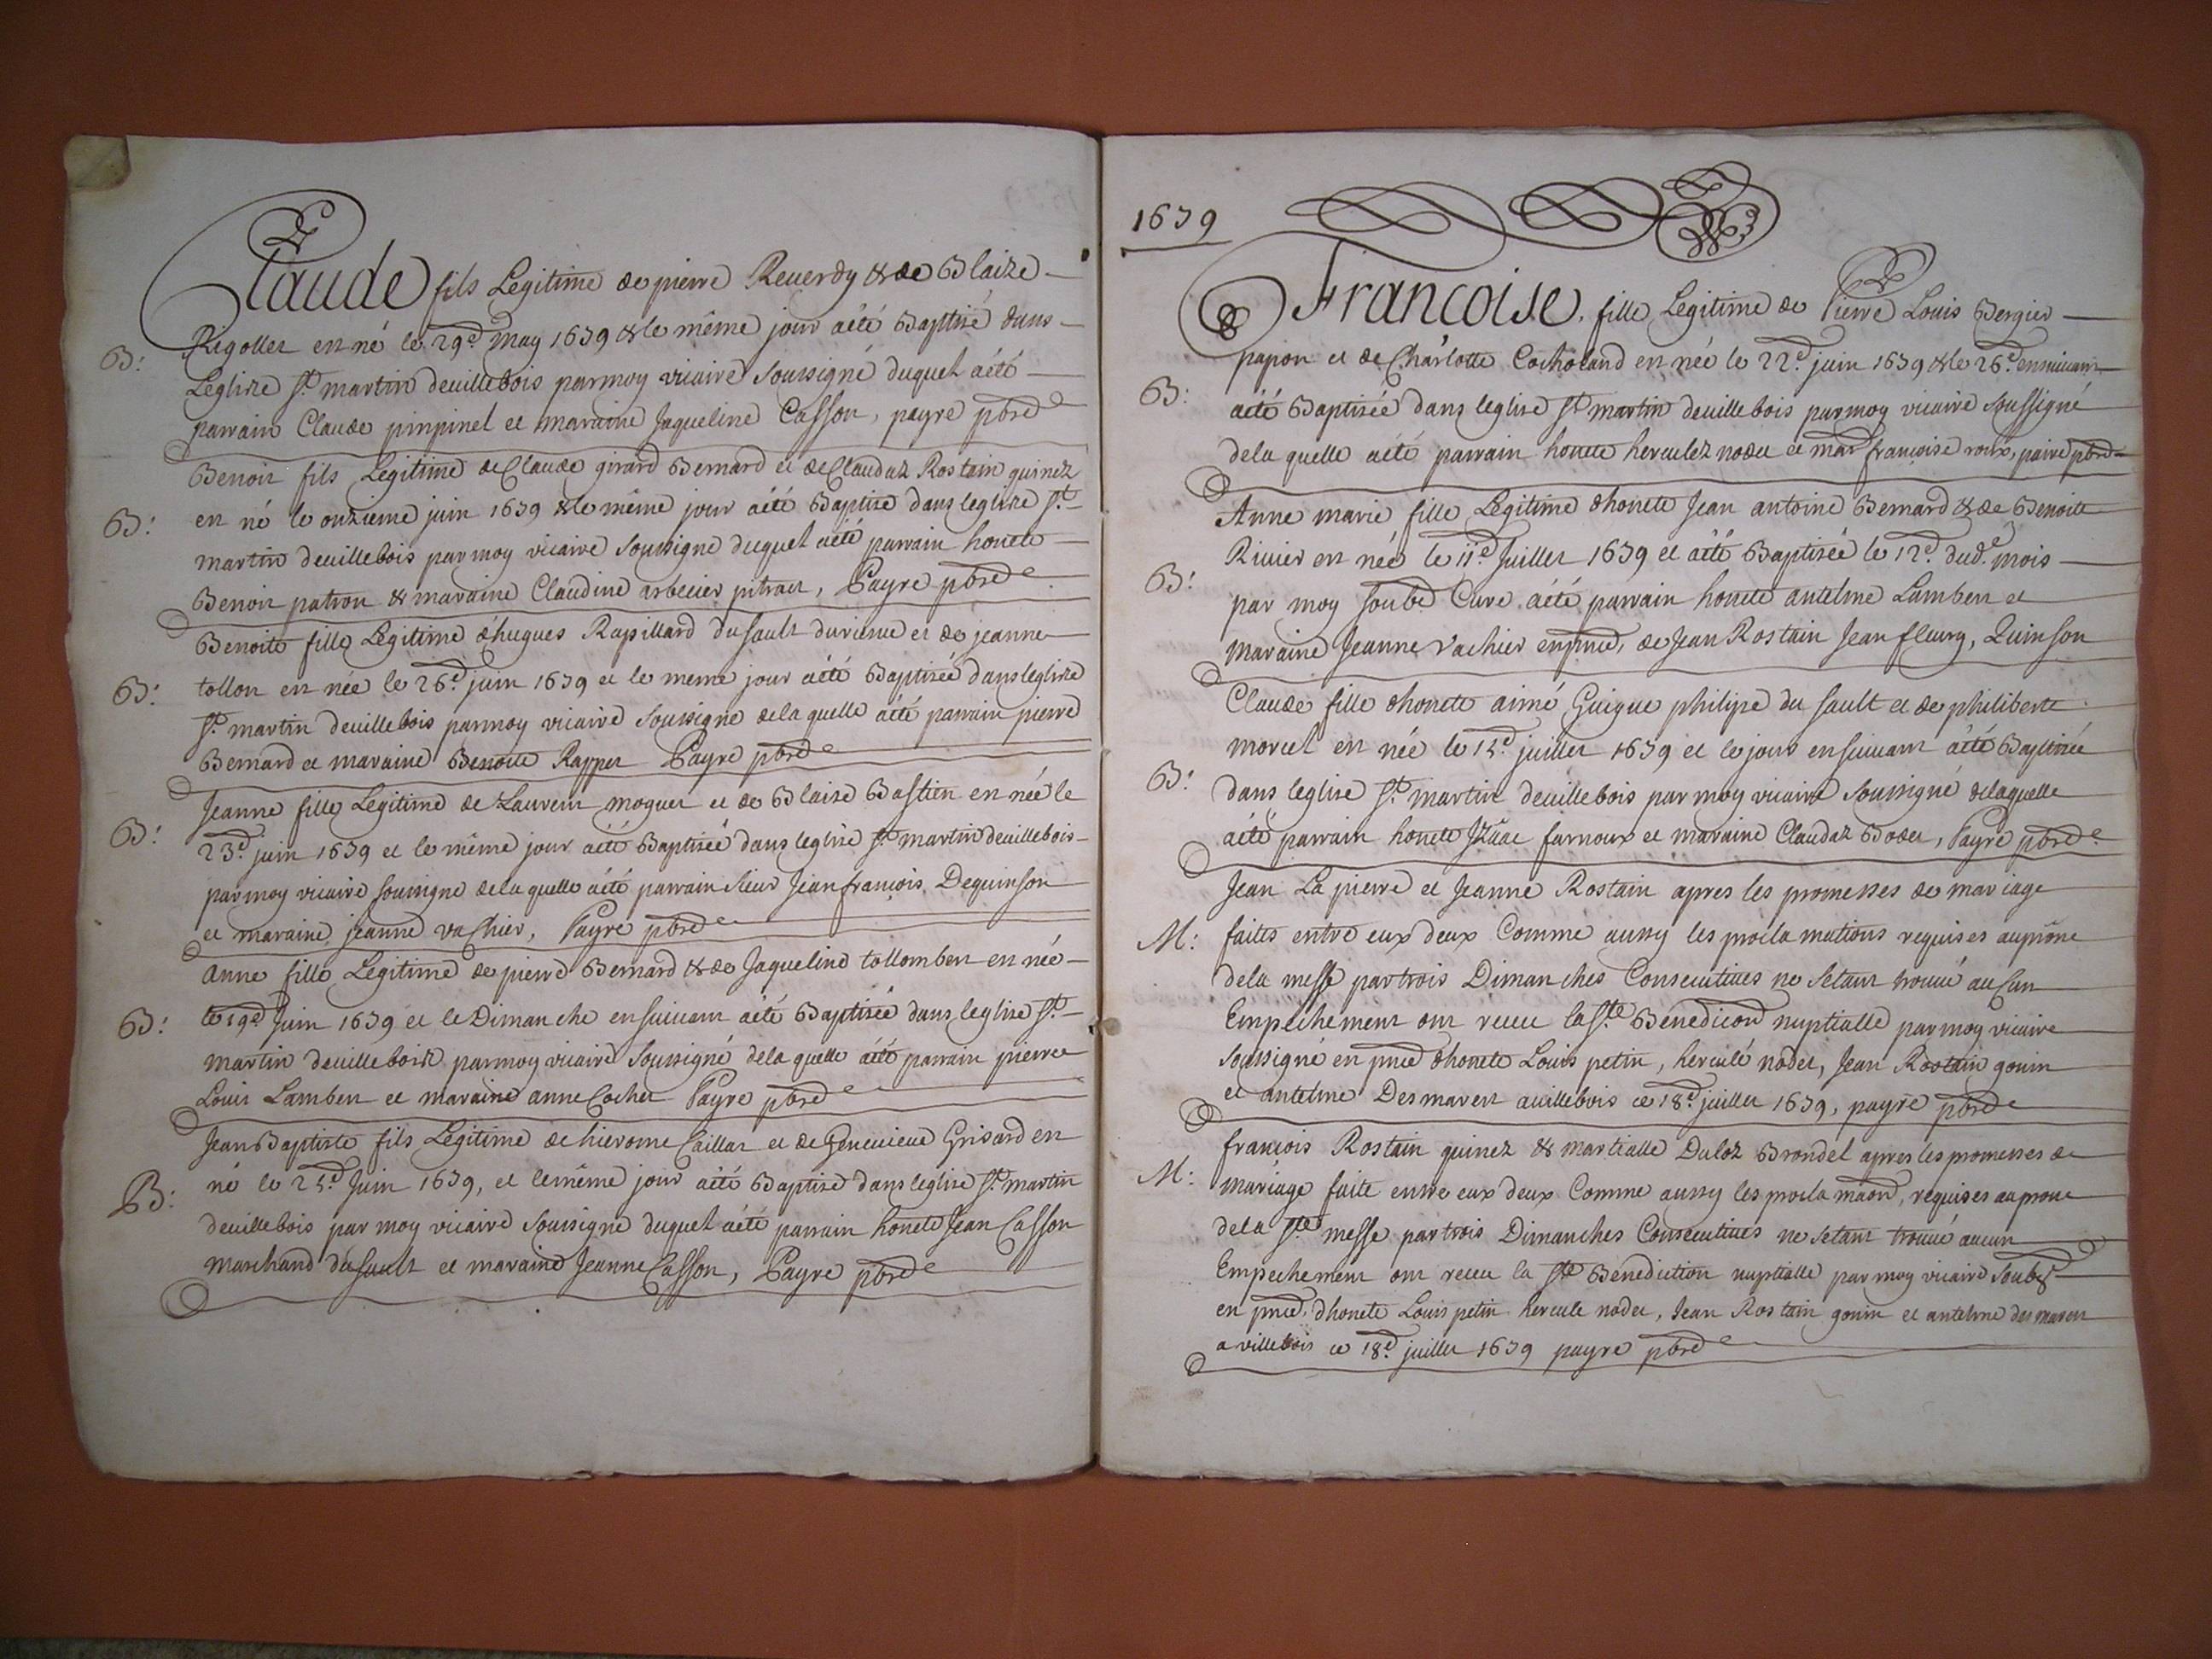 Claude fils Legitime de pierre Reuerdy & de Blaize
B: Rigollet est né le 29e May 1639 & le même jour aété Baptisé dans
Leglize St martin deuillebois parmoy vicaire Soussigné duquel aété
parrain Claude pinpinel et maraine Jaqueline Casson, payre pbre
Benoit fils Legitime de Claude girard Bernard et de Claudaz Rostain quinez
B: est né le onzieme juin 1639 & le même jour aété Baptisé dans leglize St
martin deuillebois par moy vicaire Soussigné duquel aété parrain honete
Benoit patron & maraine Claudine arbecier pitrat, Payre pbre
Benoite fille Legitime d'hugues Rapillard du Sault et de jeanne
B: tollon est née le 26e juin 1639 et le meme jour aété Baptisée dans leglize
St martin deuillebois parmoy vicaire Soussigné dela quelle aété parrain pierre
Bernard et maraine Benoite Rapper Payre pbre
Jeanne fille Legitime de Laurent moguet et de Blaise Bastien est née le
B: 23e juin 1639 et le même jour aété Baptisée dans leglise St martin deuillebois
parmoy vicaire soussigné dela quelle aété parrain Sieur Jean francois Dequinson
et maraine jeanne vachier, Payre pbre
Anne fille Legitime de pierre Bernard & de Jaqueline tollombert est née
B: le 19e Juin 1639 et le Dimanche ensuiuant aété Baptisée dans leglise St
martin deuillebois parmoy vicaire Soussigné dela quelle aété parrain pierre
Louis Lambert et maraine anne Cochet Payre pbre
Jean Baptiste fils Legitime de hierome Caillat et de Geneuieue Grisard est
B: né le 25e Juin 1639, et lemême jour aété Baptisé dans leglise St martin
deuillebois par moy vicaire Soussigné duquel aété parrain honete Jean Casson
marchand du Sault et maraine Jeanne Casson, Payre pbre
1639
Francoise, fille Legitime de Pierre Louis Bergier
papon et de Charlotte Cocholand est née le 22e juin 1639 & le 26e ensuiuant
B: aété Baptisée dans leglise St martin deuillebois parmoy vicaire Soussigné
dela quelle aété parrain honete herculez nodet et mar francoise roux, paire pbre
Anne marie fille Legitime d'honete Jean antoine Bernard & de Benoite
Riuier est née le 11e Juillet 1639 et aété Baptisée le 12e dud. mois
B: par moy soubd Curé aété parrain honete antelme Lambert et
maraine Jeanne Vachier en pnce, de Jean Rostain Jean fleury, Quinson
Claude fille d'honete aimé Guigue philipe du Sault et de philiberte
morcel est née le 15e juillet 1639 et le jour ensuiuant aété Baptisée
B: dans leglise St martin deuillebois par moy vicaire Soussigné delaquelle
aété parrain honete Izaac farnoux et maraine Claudaz Bodet, Payre pbre
Jean La pierre et Jeanne Rostain apres les promesses de mariage
M: faites entre eux deux Comme aussy les proclamations requises auprône
dela messe par trois Dimanches Consecutiues ne setant trouué aucun
Empechement ont receu la Ste Benediction nuptialle par moy vicaire
soussigné en pnce d'honete Louis petin, herculé nodet, Jean Rostain gonin
et antelme Desmaret auillebois ce 18e juillet 1639, payre pbre
francois Rostain quinez & martialle Duloz Brondel apres les promesses de
M: mariage faite entre eux deux Comme aussy les proclamaon, requises auprone
dela Ste messe par trois Dimanches Consecutiues ne setant trouué aucun
Empechement ont receu la Ste Benediction nuptialle par moy vicaire Soubs
en pnce, d'honete Louis petin hercule nodet, Jean Rostain gonin et antelme des maret
a villebois ce 18e juillet 1639 payre pbre